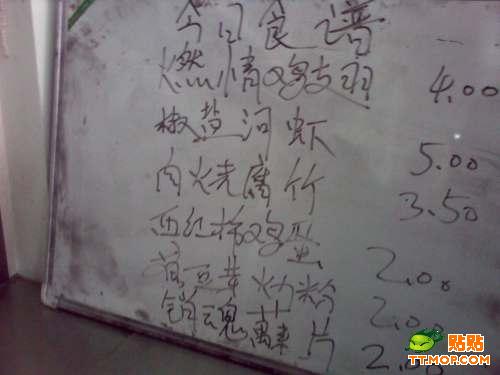 今日食谱
燃情鸡翅 4.00
椒盐河虾 5.00
肉烧腐竹 3.50
西红柿鸡蛋 2.00
豆芽炒粉 2.00
销魂 片 2.00
贴贴
TT.MOP.COM